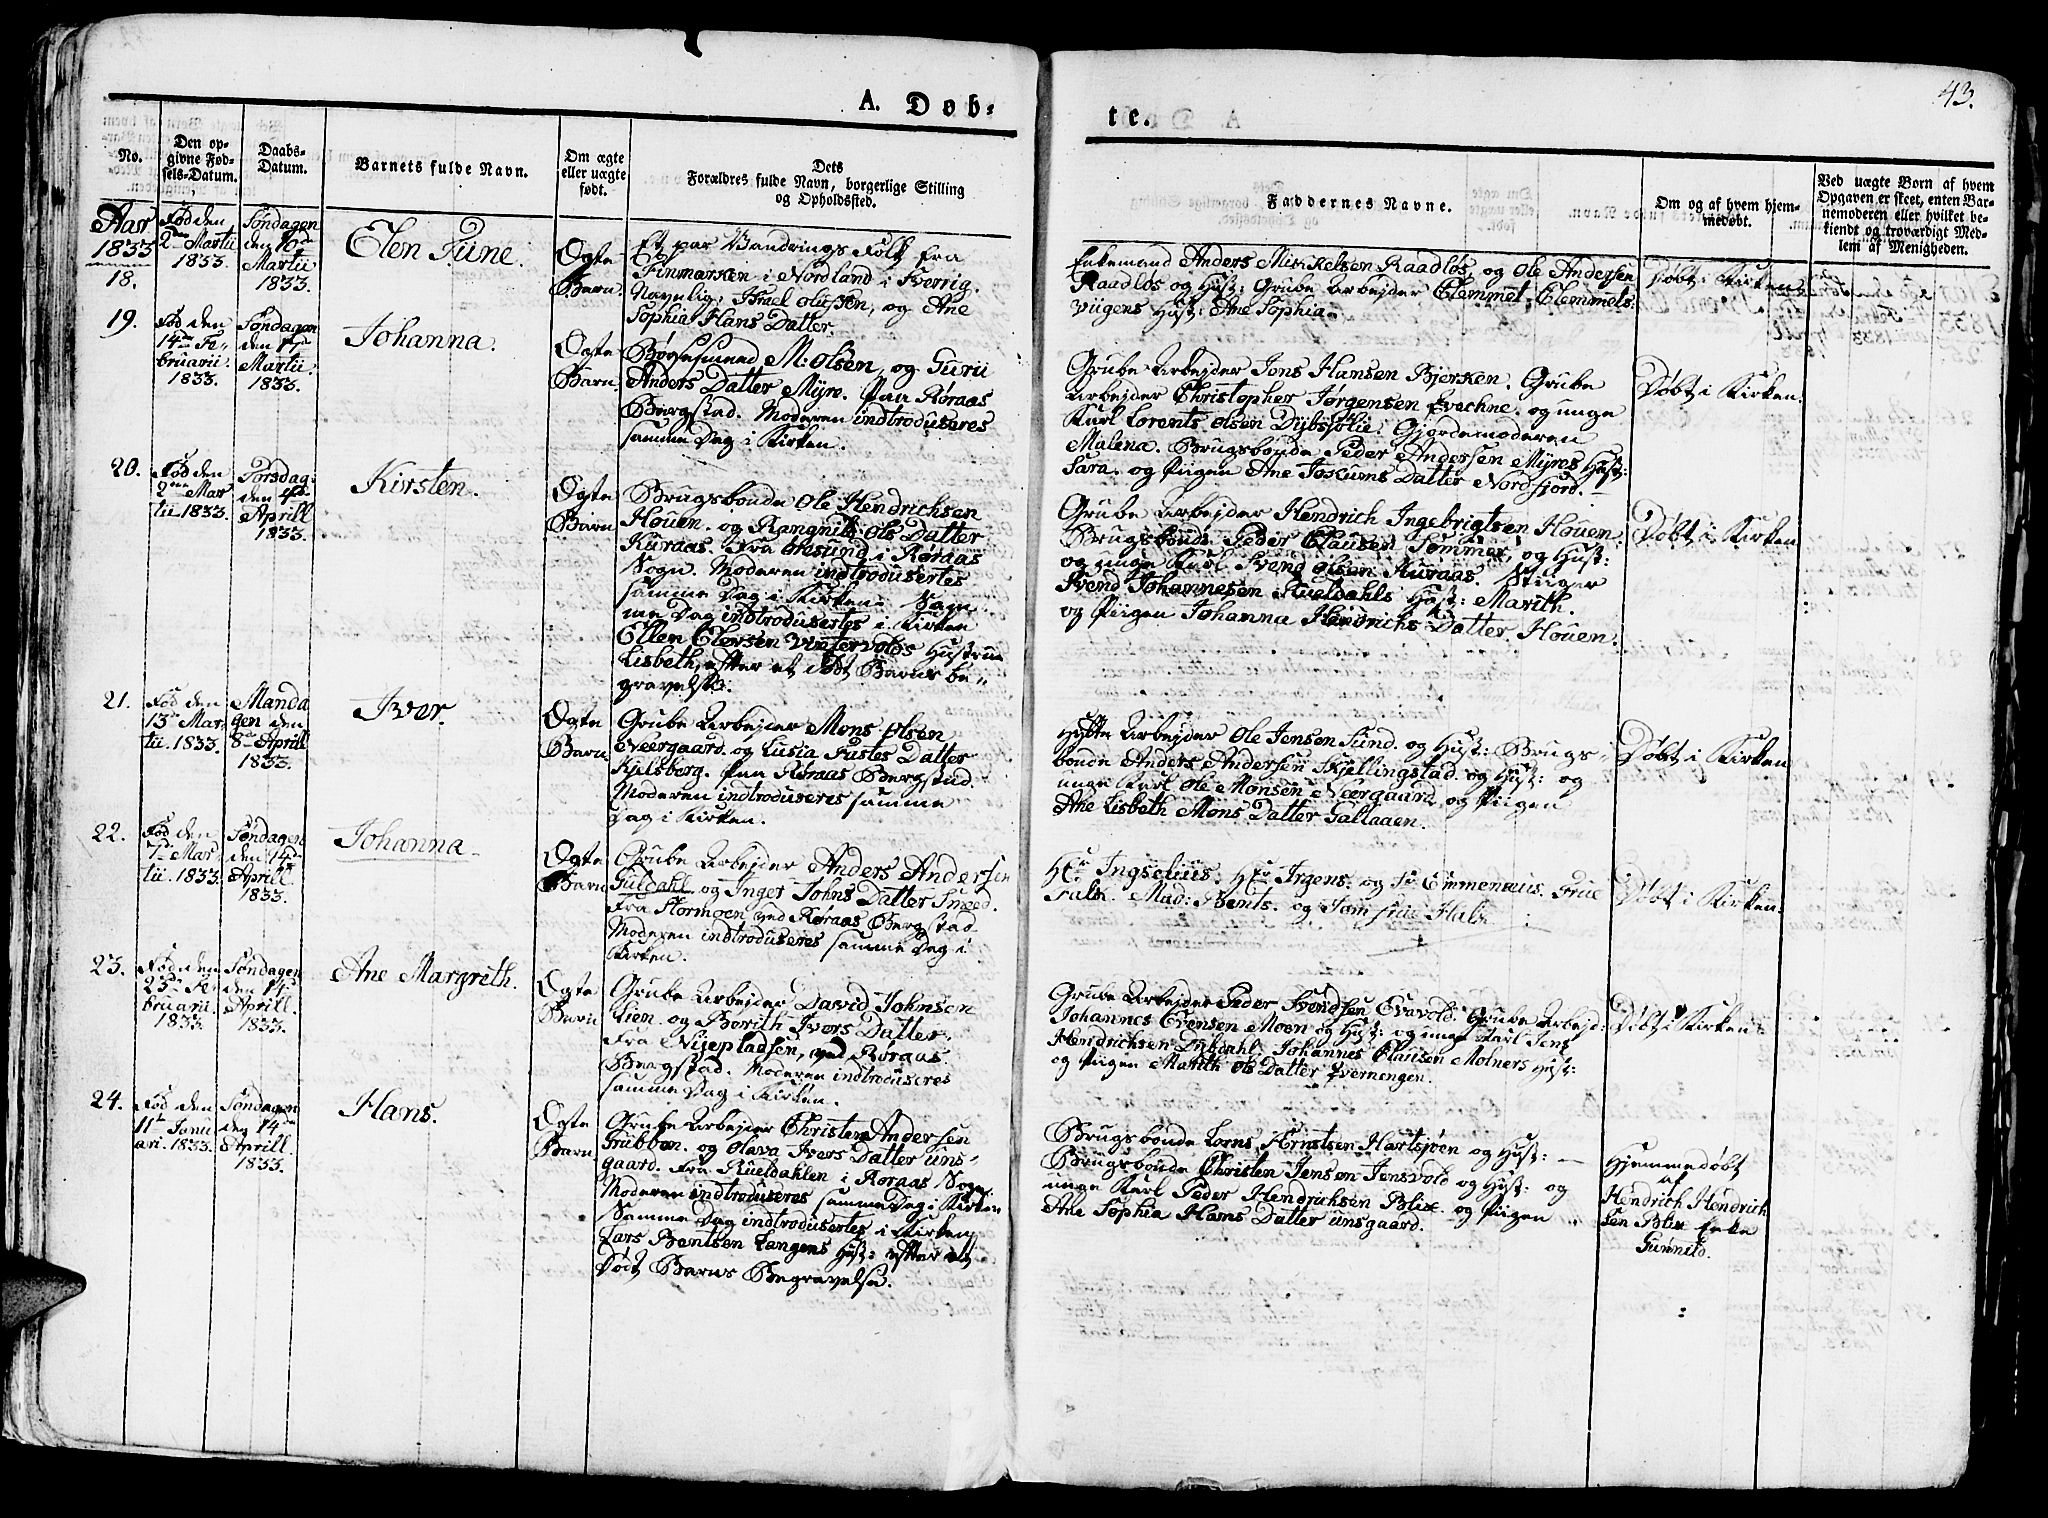 43.
A. Døb-
te.
No.
Den op-
givne Fød-
sels-Datum.
Daabs-
Datum.
Barnets fulde Navn.
Om ægte
eller uægte
født.
Dets
Forældres fulde Navn, borgerlige Stilling
og Opholdssted.
Faddernes Navne.
Om og af hvem hjem-
medøbt.
Ved uægte Børn af hvem
Opgaven er skeet, enten Bar-
nemoderen eller hvilket be-
kiendt og troværdigt Med-
lem af Menigheden.
Aar
1833
18.
Fød den
2den Martii
1833.
Søndagen
den 10de
Martii
1833.
Elen June.
Ægte
Barn.
Et par Vandrings Folk fra
Finmarken i Nordland i Sverrig.
Navnlig: Israel Olufsen, og Ane
Sophia Hans Datter.
Enkemand Anders Mikkelsen Raadløs, og Ole Andersen
Raadløs og Hust: Grube Arbejder Clemmet Clemmets.
Viigens Hust: Ane Sophia
Døbt i Kirken
19.
Fød den
14de Fe-
bruarii.
1833.
Søndagen
den 17de
Martii.
1833.
Johanna.
Ægte
Barn
Børsesmend M: Olsen, og Guru
Anders Datter Myre. Paa Røraas
Bergstad. Moderen indtroduseres
samme Dag i Kirken.
Grube Arbejder Jons Hansen Bjerken. Grube
Arbejder Christopher Jørgensen Evechne. og unge
Karl Lorents Olsen Dybsjølie. Gjordemoderen
Malena. Brugsbonde Peder Andersen Myres Hust:
Sara. og Piigen Ane Jokums Datter Nordfjord.
Døbt i Kirken.
20.
Fød den
2den Mar
tii 1833.
Torsdag:
den 4de
Aprill
1833.
Kirsten.
Ægte
Barn
Brugsbonde Ole Hendrichsen
Houen. og Rangnild Ols Datter
Kuraas. Fra Glesund i Røraas
Sogn. Moderen indtrodusertes
samme Dag i Kirken. Sam
me Dag indtrodusertes i Kirken
Ellen Elersen Vintervolds Hustrue
Lisbeth, efter et dødt Barns be-
gravelse.
Grube Arbejder Hendrich Ingebrigtsen Houen.
Brugsbonde Peder Clausen Sømmer, og Hust:
og unge Karl Svend Olsen Kuraas. Stiiger
Svend Johannesen Rueldahls Hust: Marith.
og Piigen Johanna Hendrichs Datter. Houen.
Døbt i Kirken
21.
Fød den
13de Mar.
tii. 1833.
Manda
gen den
8de Aprill
1833.
Iver.
Ægte
Barn
Grube Arbejder Mons Olsen
Neergaard. og Lusia Fastes Datter
Kjelsberg. Paa Røraas Bergstad.
Moderen indtroduseres samme
Dag i Kirken.
Hytte Arbejder Ole Jensen Sund. og Hust: Brugs-
bonde Anders Andersen Skjellingstad. og Hust: og
unge Karl Ole Monsen Neergaard. og Piigen
Ane Lisbeth Mons Datter Gallaaen.
Døbt i Kirken
22.
Fød den
7de Mar
tii. 1833.
Søndagen
den 14de
Aprill.
1833.
Johanna
Ægte
Barn
Grube Arbejder Anders Andersen
Guldahl og Inger Johns Datter Smed.
Fra Stormoen ved Røraas Berg stad
Moderen indtroduseres samme Dag i
Kirken.
Hr Ingselius. Hr Irgens. og Fr Emmenæus. Frue
Falk. Mad: Bents. og Jomfrue Halse
Døbt i Kirken.
23.
Fød den
23de Fe
bruarii.
1833.
Søndagen
den 14de
Aprill.
1833.
Ane Margrith.
Ægte
Barn
Grube Arbejder David Johnsen
Lien. og Berith Ivers Datter.
Fra Nyepladsen, ved Røraas
Bergstad. Moderen indtroduseres
samme Dag i Kirken.
Grube Arbejder Peder Svendsen Evavold. Grube Arbejd:
Johannes Evensen Moen og Hust: og unge Karl Jens
Hendrichsen Dybdahl. Johannes Clausen Molners Hust:
og Piigen Marith Ols Datter Evernengen.
Døbt i Kirken
24.
Fød den
11te Janu
ari. 1833.
Søndagen
den 14de
Aprill
1833.
Hans.
Ægte
Barn
Grube Arbejder Christen Andersen
Grubben. og Olava Ivers Datter Uns-
gaard. Fra Rueldahlen i Røraas Sogn
Moderen indtroduseres samme Dag i Kirken
Samme Dag indtrodusertes i Kirken
Lars Bentsen Langens Hust: efter et
Dødt Barns Begravelse.
Brugsbonde Lorns Arntsen Hartsjøen og Hust: —
Brugsbonde Christen Jensen Jensvold og Hust: og
unge Karl Peder Hendrichsen Blix. og Piigen
Ane Sophia Hans Datter Unsgaard.
Hjemmedøbt
af
Hendrich Hendrich
sen Blix Enke
Gunnild.